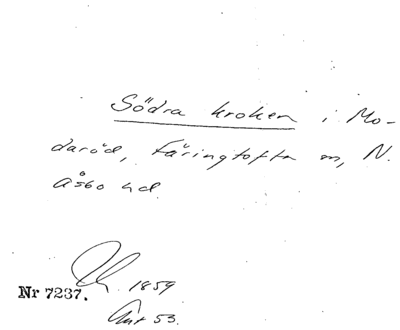 Södra kroken i Mo-
daröd, Färingtofta sn, N.
Åsbo hd.
1859
Nr 7237.
53.